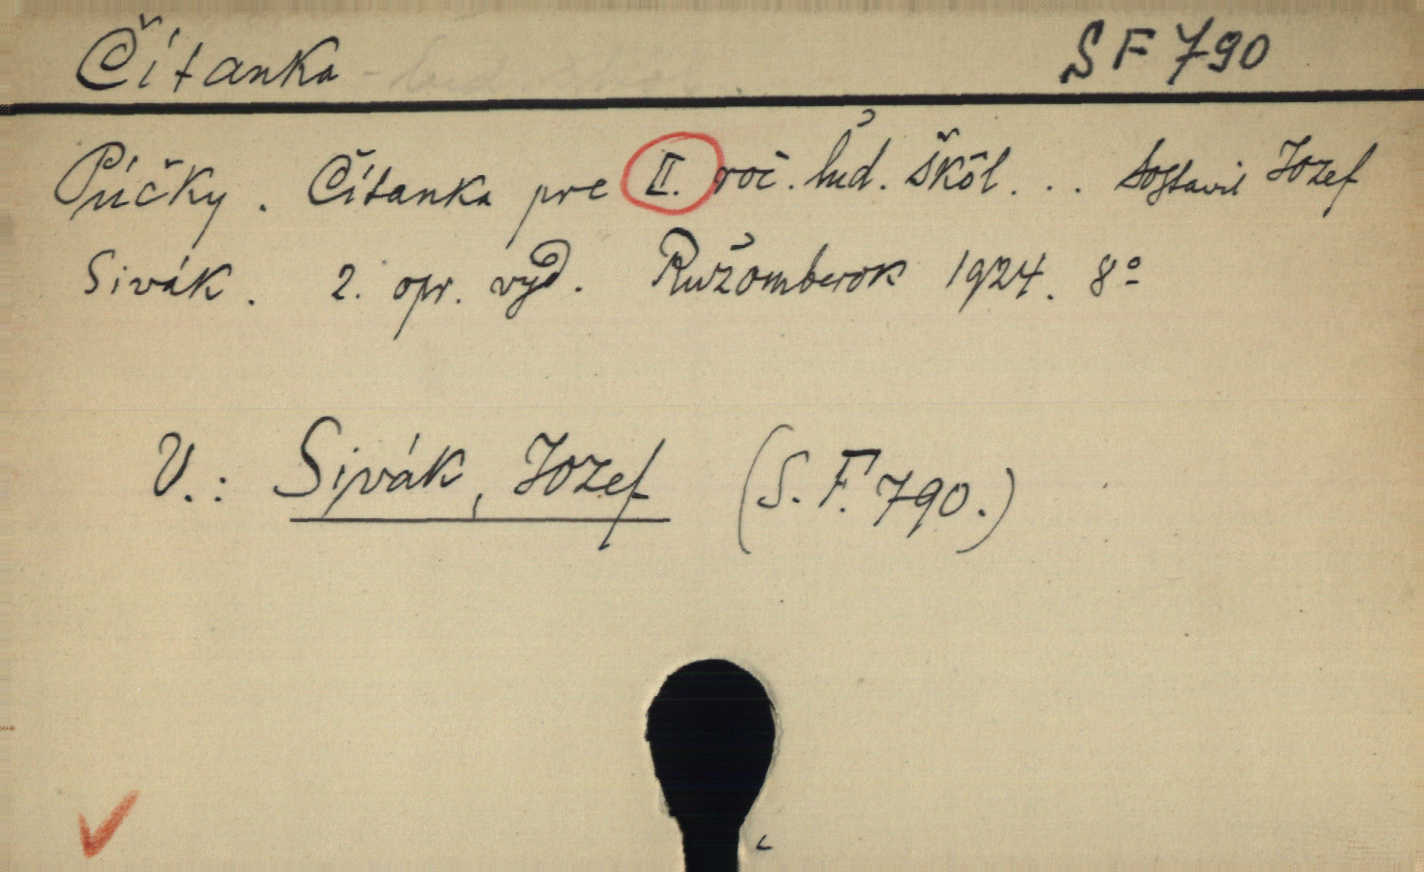 Čítanka SF 790
Púčky. Čítanka pre II. roč. ľud. škôl... Sostavil Jozef
Sivák. 2. opr. vyd. Ružomberok 1924. 8°
V.: Sivák, Jozef (S. F. 790.)